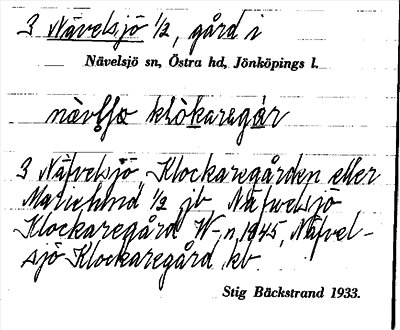 3 Nävelsjö 1/2, gård i
Nävelsjö sn, Östra hd, Jönköpings l.
klòkaregár
3 Näfvelsjö Klockaregården eller
Marielund 1/2 jb Näfwelsjö
Klockaregård W-n 1945, Näfvel-
sjö Klockaregård kb
Stig Bäckstrand 1933.